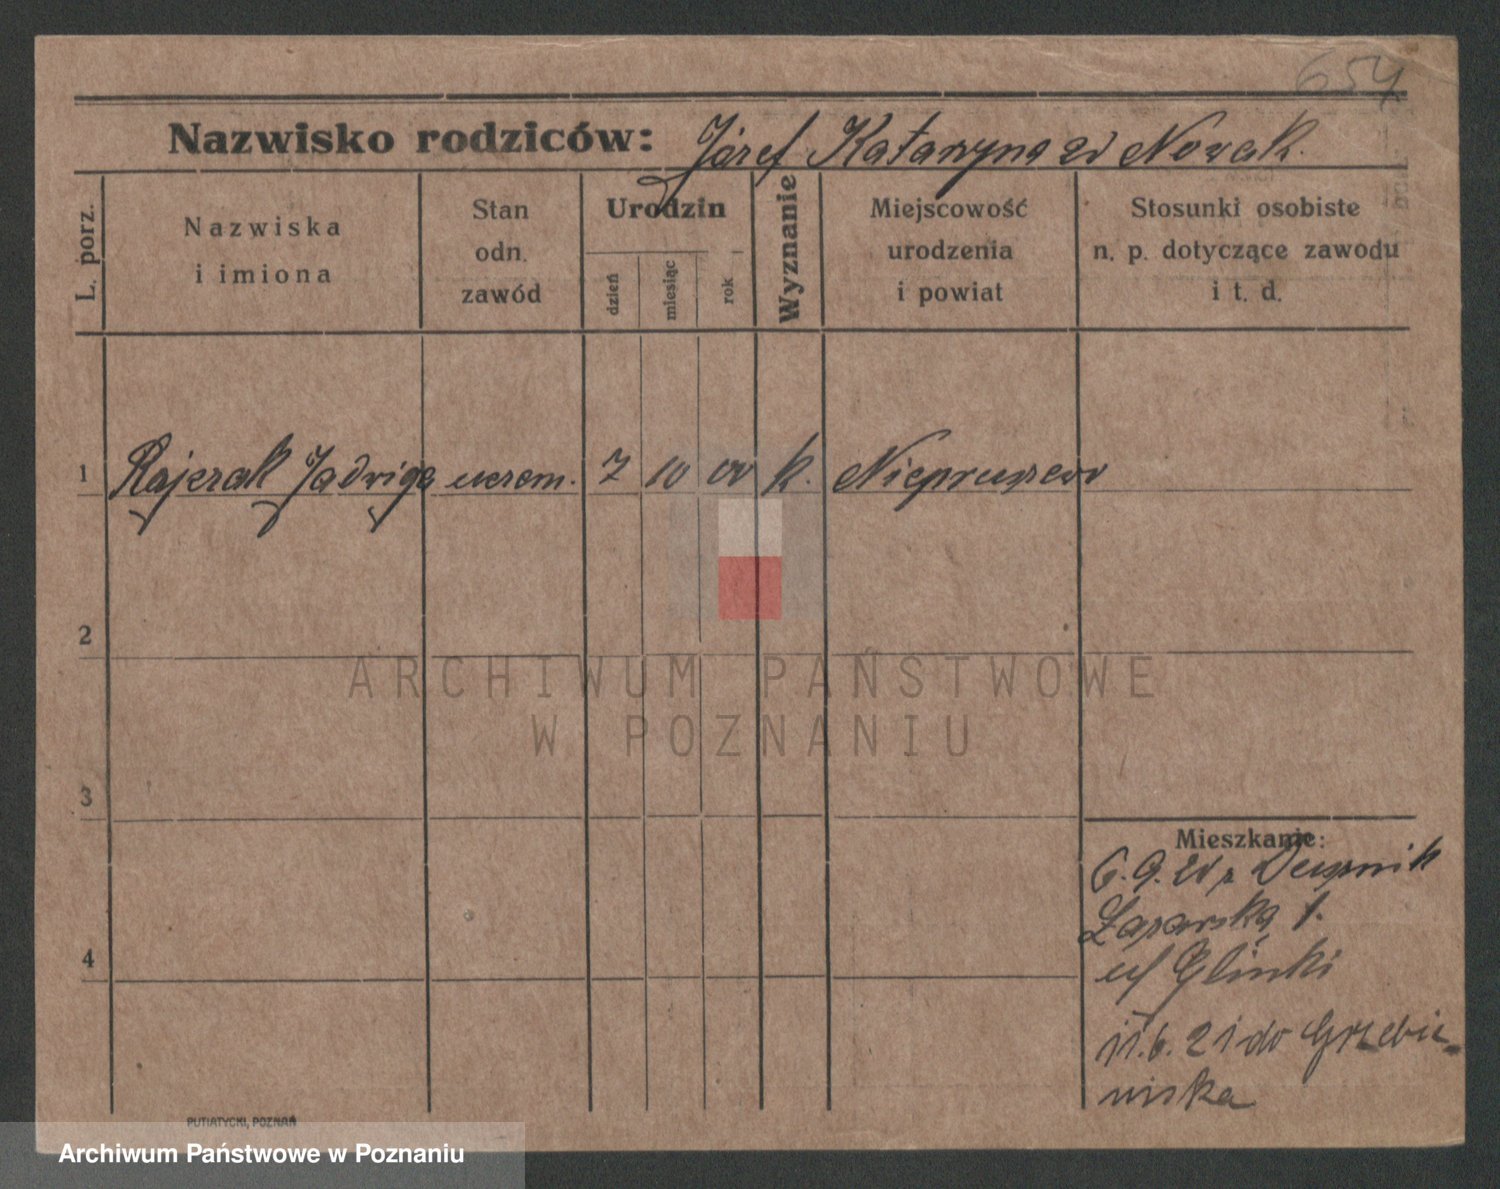 654
Nazwisko rodziców: Józef Katarzyna zd Nowak.
L. porz.
Nazwiska
i imiona
Stan
odn.
zawód
Urodzin
dzień
miesiąc
rok
Wyznanie
Miejscowość
urodzenia
i powiat
Stosunki osobiste
n. p. dotyczące zawodu
i t. d.
1 Rajczak Jadwiga uczen. 7 10 00 k. Niepruszewo
2
ARCHIWUM PAŃSTWOWE
W POZNANIU
3
Mieszkanie:
6.9.20 z Dusznik
Łazarska 1.
u/ Glinki
4
11.6.21 do Grzebie-
niska
PUTIATYCKI, POZNAŃ
Archiwum Państwowe w Poznaniu